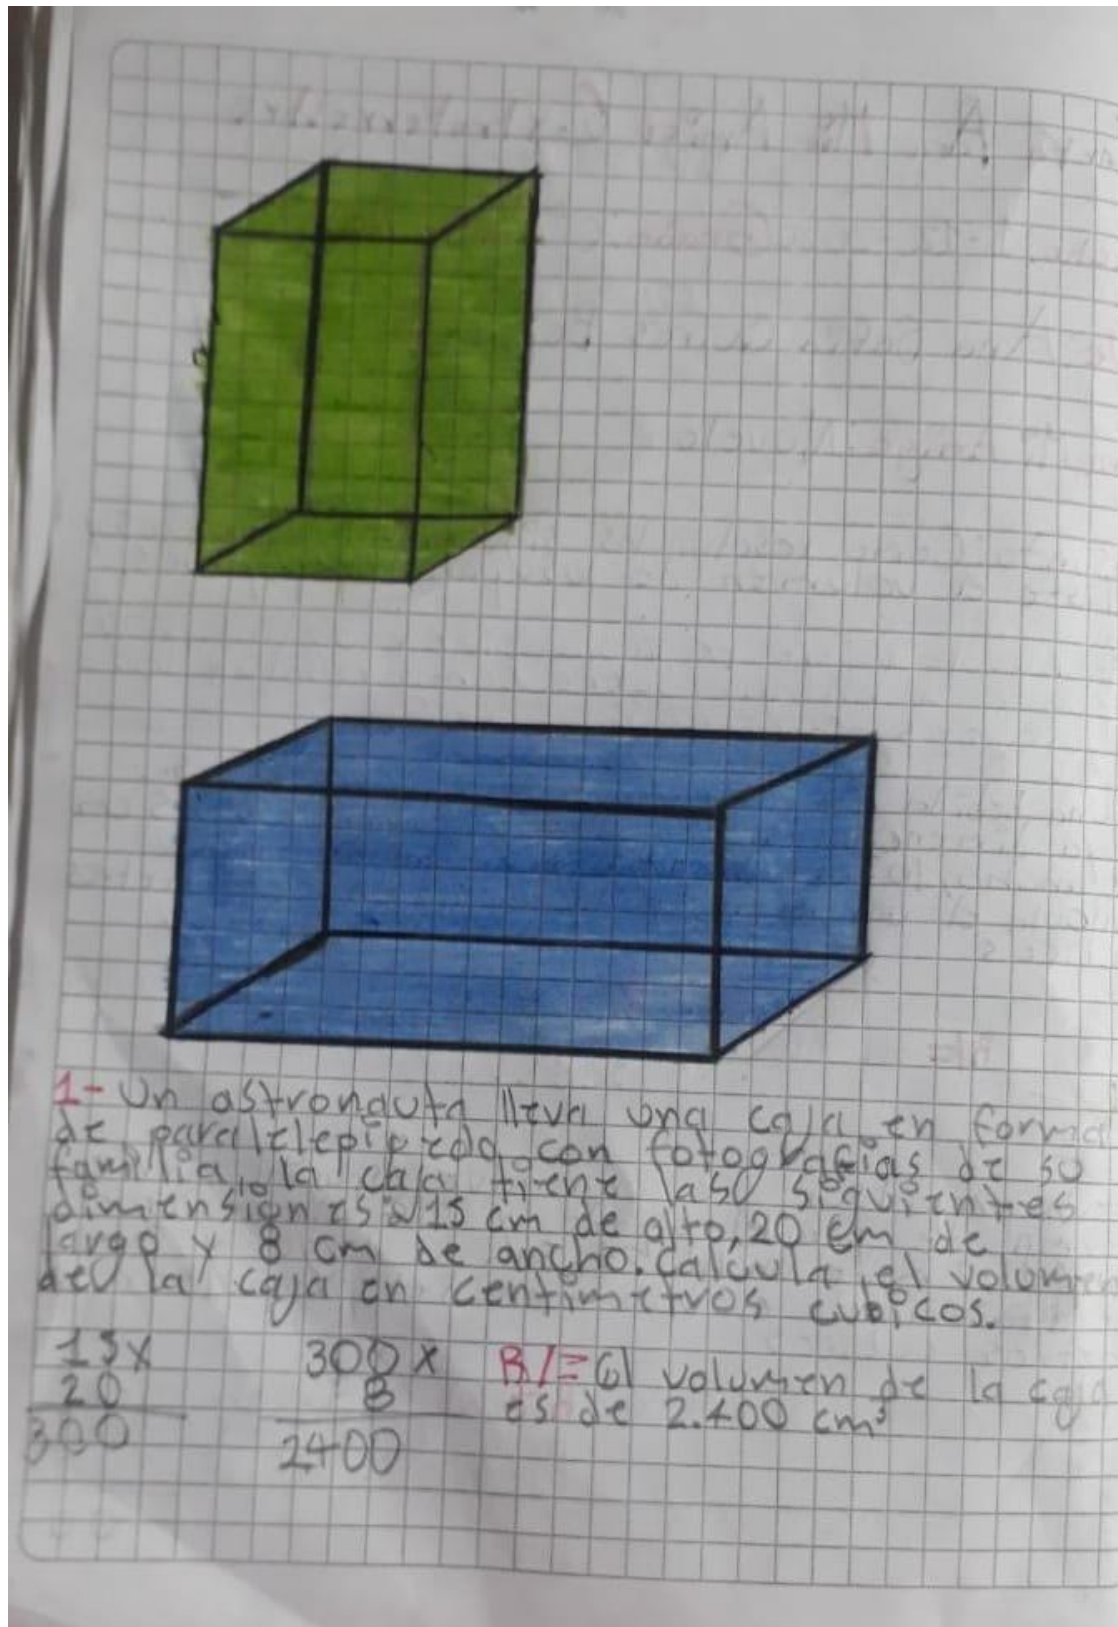 1- Un astronauta lleva una caja en forma
de paralelepípedo con fotografías de su
familia, la caja tiene las siguientes
dimensiones: 15 cm de alto, 20 cm de
largo y 8 cm de ancho. Calcula el volumen
de la caja en centimetros cubicos.
15x
20
300
300x
8
2400
R/= El volumen de la caja
es de 2.400 cm³